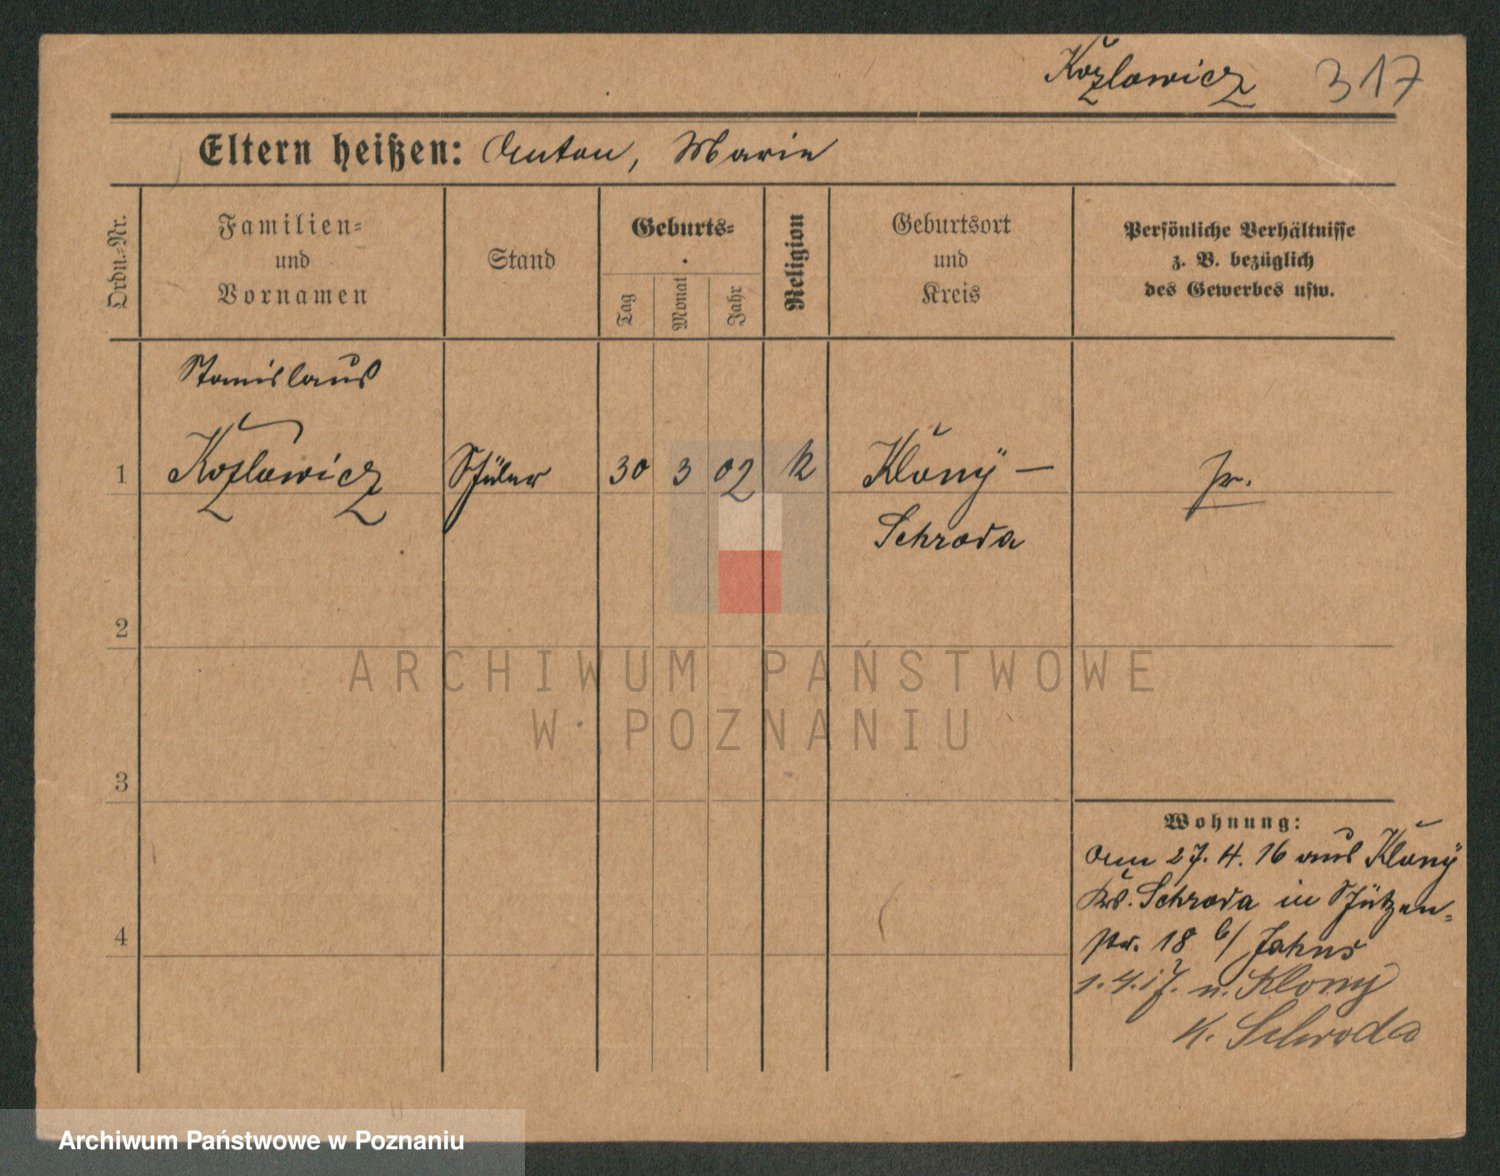 Kozlowicz 317
Eltern heißen: Anton, Marie
Ordn.-Nr.
Familien-
und
Vornamen
Stand
Geburts-
Tag
Monat
Jahr
Religion
Geburtsort
und
Kreis
Persönliche Verhältnisse
z. B. bezüglich
des Gewerbes usw.
Stanislaus
1 Kozlowicz Schüler 30 3 02 k Klony – pr.
Schroda
2
ARCHIWUM PAŃSTWOWE
W POZNANIU
3
Wohnung:
Am 27. 4. 16 aus Klony
Krs. Schroda in Schützen-
str. 18 b/ Jahns
4
1.4.17. n. Klony
K. Schroda
Archiwum Państwowe w Poznaniu